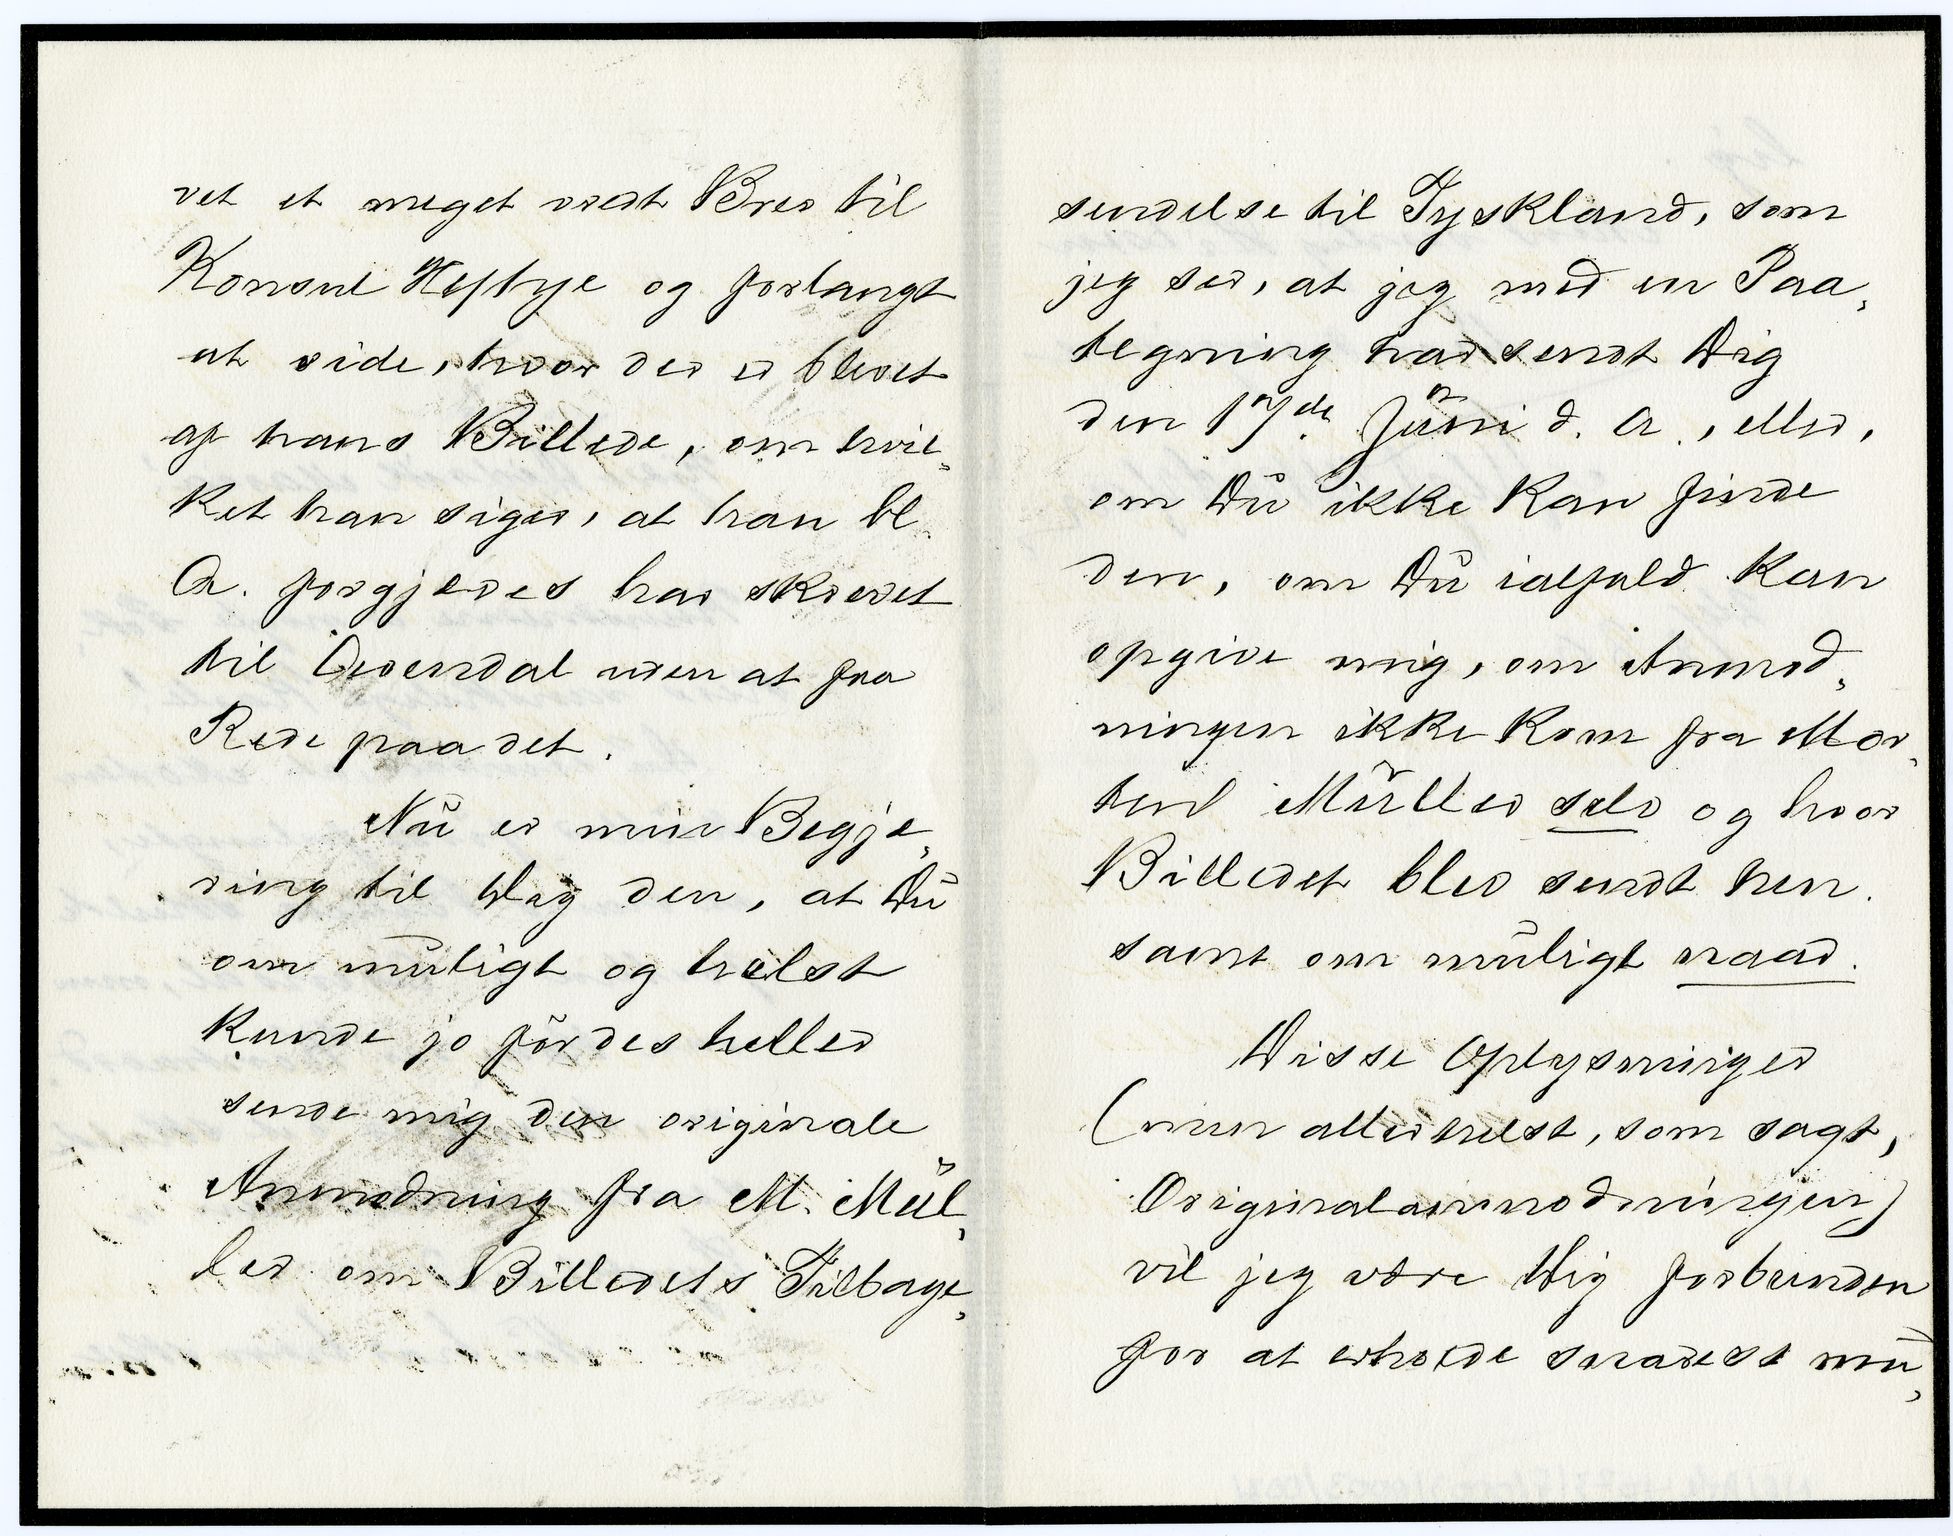 vet et meget vredt Brev til
Konsul Heftye og forlangt
at vide, hvor der er blevet
af hans Billede, om hvil„
ket han siger, at han bl.
A. forgjæves har skrevet
til Ovendal uden at faa
Rede paa det.
Nu er min Begjæ„
ring til Dig den, at Du
om muligt og helst
kunde jo før des heller
sende mig den originale
Anmodning fra M. Mül„
ler om Billedets Tilbage„
sendelse til Tyskland, som
jeg ser, at jeg med en Paa„
tegning har sendt Dig
den 17de Juni d. A., eller,
om Du ikke kan finde
den, om Du ialfald kan
opgive mig, om Anmod„
ningen ikke kom fra Mor„
ten Müller selv og hvor
Billedet blev sendt hen
samt om muligt naar.
Disse Oplysninger
(men allerhelst, som sagt,
Originalanmodningen)
vil jeg være Dig forbunden
for at erholde snarest mu„